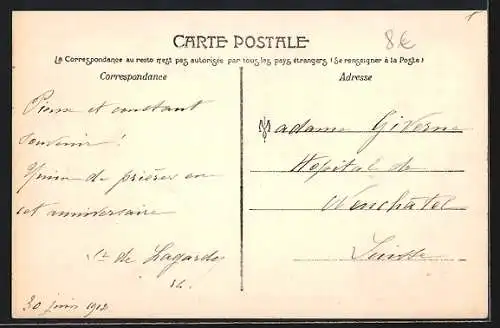 8€
CARTE POSTALE
La Correspondance au recto n'est pas autorisée par tous les pays étrangers (Se renseigner à la Poste)
Correspondance
Adresse
Pieux et constant
souvenir !
Union de prières en
cet anniversaire
de Lagarde
30 juin 1912
Madame Giverne
Hopital de
Neuchatel
Suisse